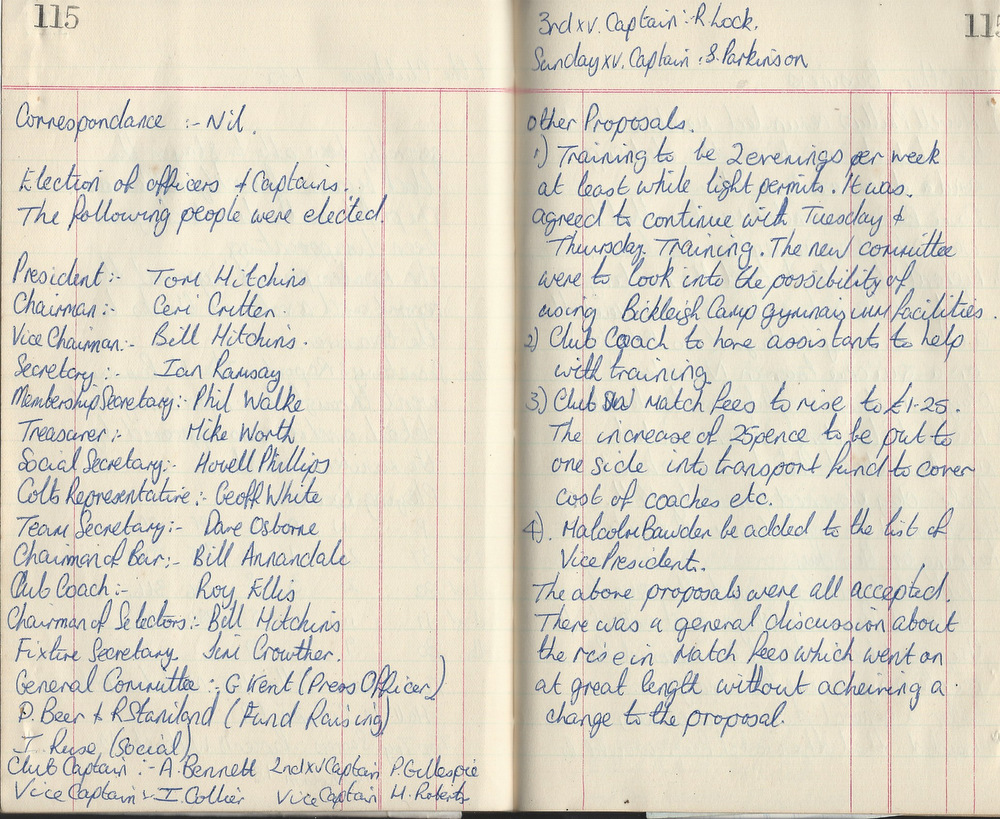 115
Correspondance :- Nil.
Election of officers & Captains.
The following people were elected.
President:- Tom Hitchins
Chairman:- Ceri Critter
Vice Chairman:- Bill Hitchins.
Secretary:- Ian Ramsay
Membership Secretary:- Phil Walke
Treasurer:- Mike Worth
Social Secretary:- Howell Phillips
Colts Representative:- Geoff White
Team Secretary:- Dave Osborne
Chairman of Bar:- Bill Annandale
Club Coach:- Roy Ellis
Chairman of Selectors:- Bill Hitchins
Fixture Secretary. Jim Crowther.
General Committee:- G Kent (Press Officer)
D. Beer & R Staniland (Fund Raising)
I. Ruse (Social)
Club Captain:- A. Bennett 2nd xv Captain P. Gillespie
Vice Captain:- I. Collier Vice Captain H. Roberts
115
3rd xv. Captain:- R. Lock.
Sunday xv. Captain :S. Parkinson
Other Proposals.
1) Training to be 2 evenings per week
at least while light permits. It was.
agreed to continue with Tuesday &
Thursday Training. The new committee
were to look into the possibility of
using Bickleigh Camp gymnasium facilities.
2) Club Coach to have assistants to help
with training.
3) Club Match fees to rise to £1-25.
The increase of 25pence to be put to
one side into transport fund to cover
cost of coaches etc.
4). Malcolm Bawden be added to the list of
Vice Presidents.
The above proposals were all accepted.
There was a general discussion about
the rise in Match fees which went on
at great length without acheiving a
change to the proposal.